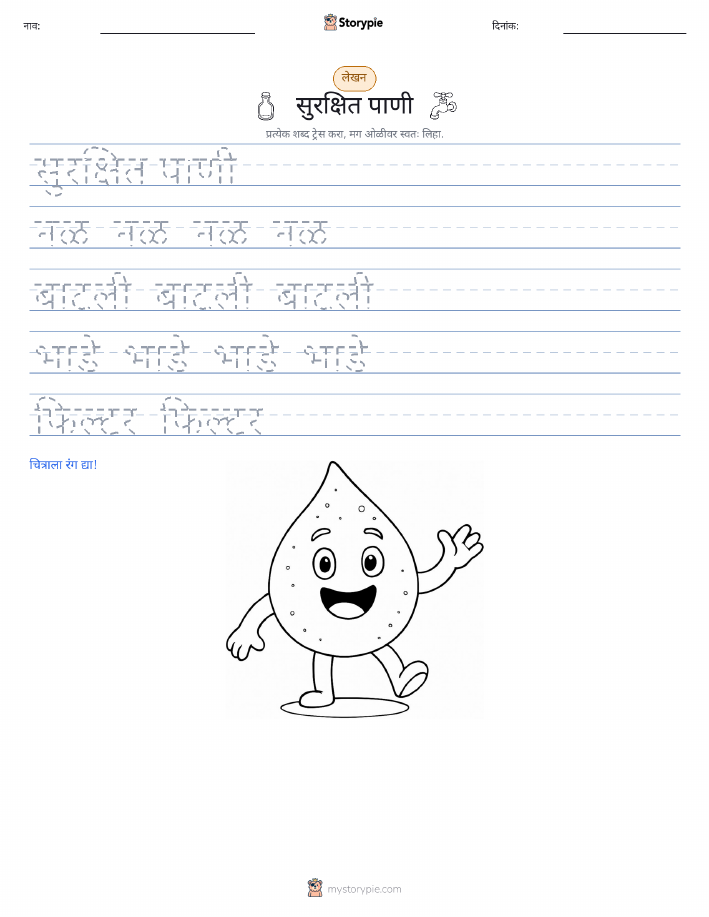 नाव: Storypie दिनांक:
लेखन
सुरक्षित पाणी
प्रत्येक शब्द ट्रेस करा, मग ओळीवर स्वतः लिहा.
सुरक्षित पाणी
नळ नळ नळ नळ
बाटली बाटली बाटली
भांडे भांडे भांडे भांडे
फिल्टर फिल्टर
चित्राला रंग द्या!
mystorypie.com